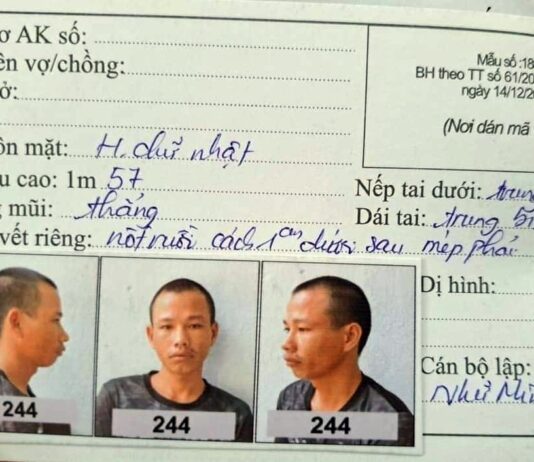 ơ AK số:
ên vợ/chồng:
ở:
Mẫu số:18
BH theo TT số 61/20
ngày 14/12/2
(Nơi dán mã
ôn mặt: H. chữ nhật
u cao: 1m 57
Nếp tai dưới: trung
g mũi: thẳng
Dái tai: trung
vết riêng: nốt ruồi cách 1cm dưới sau mép phải
Dị hình:
Cán bộ lập:
Như
244
244
244